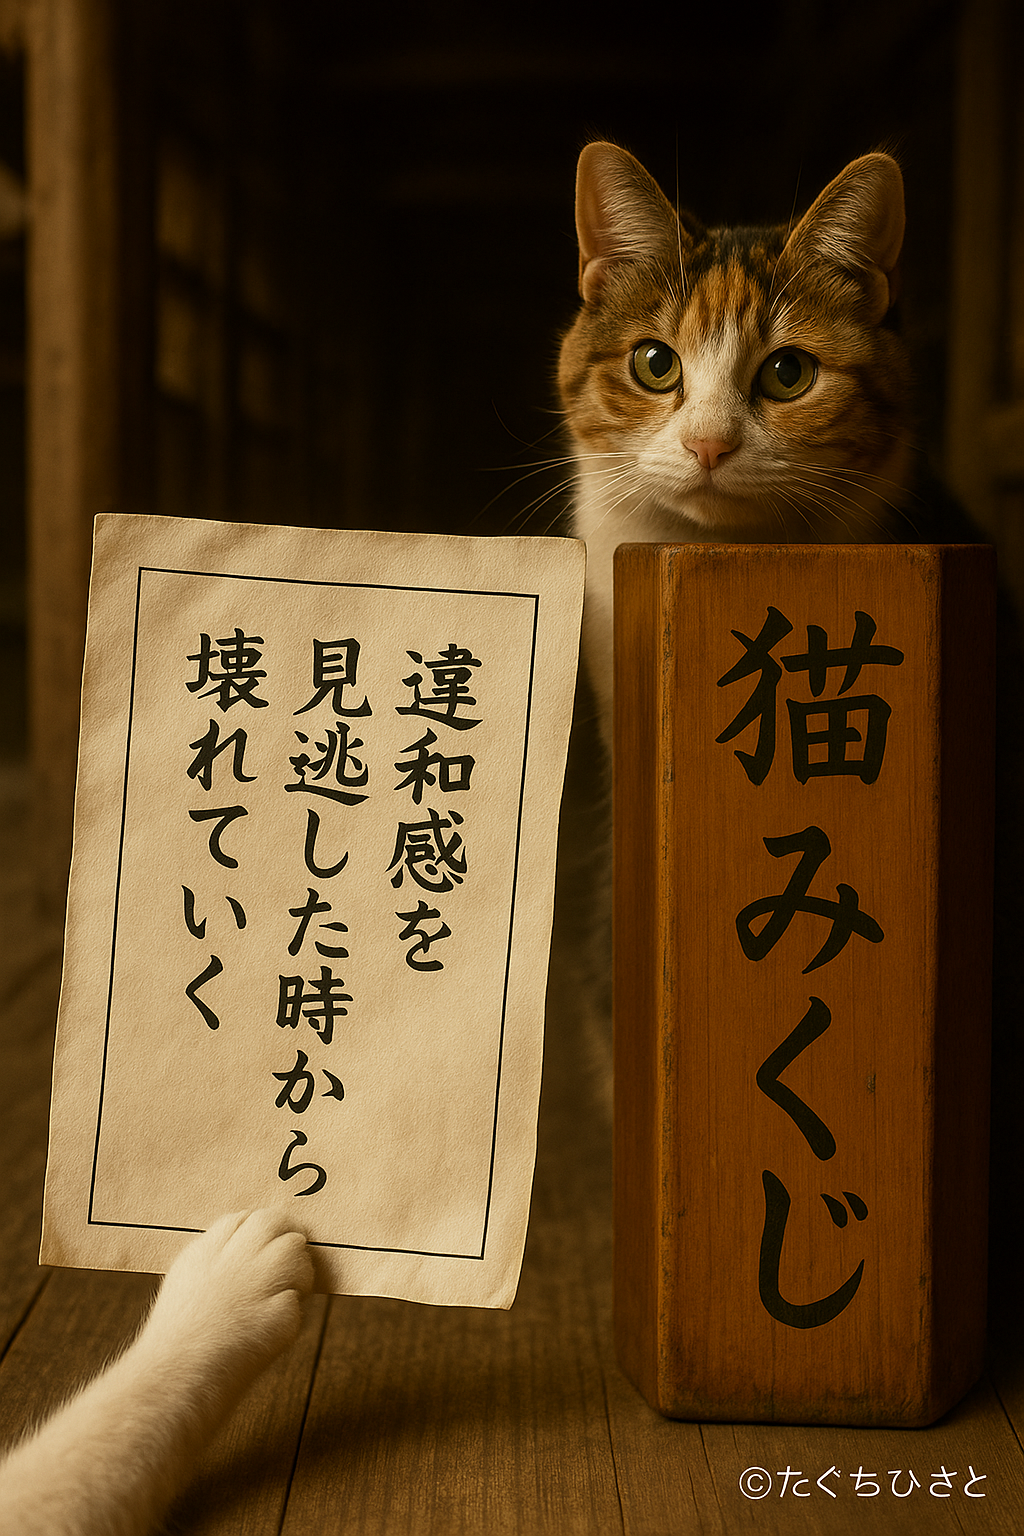 違和感を
見逃した時から
壊れていく
猫みくじ
©たぐちひさと